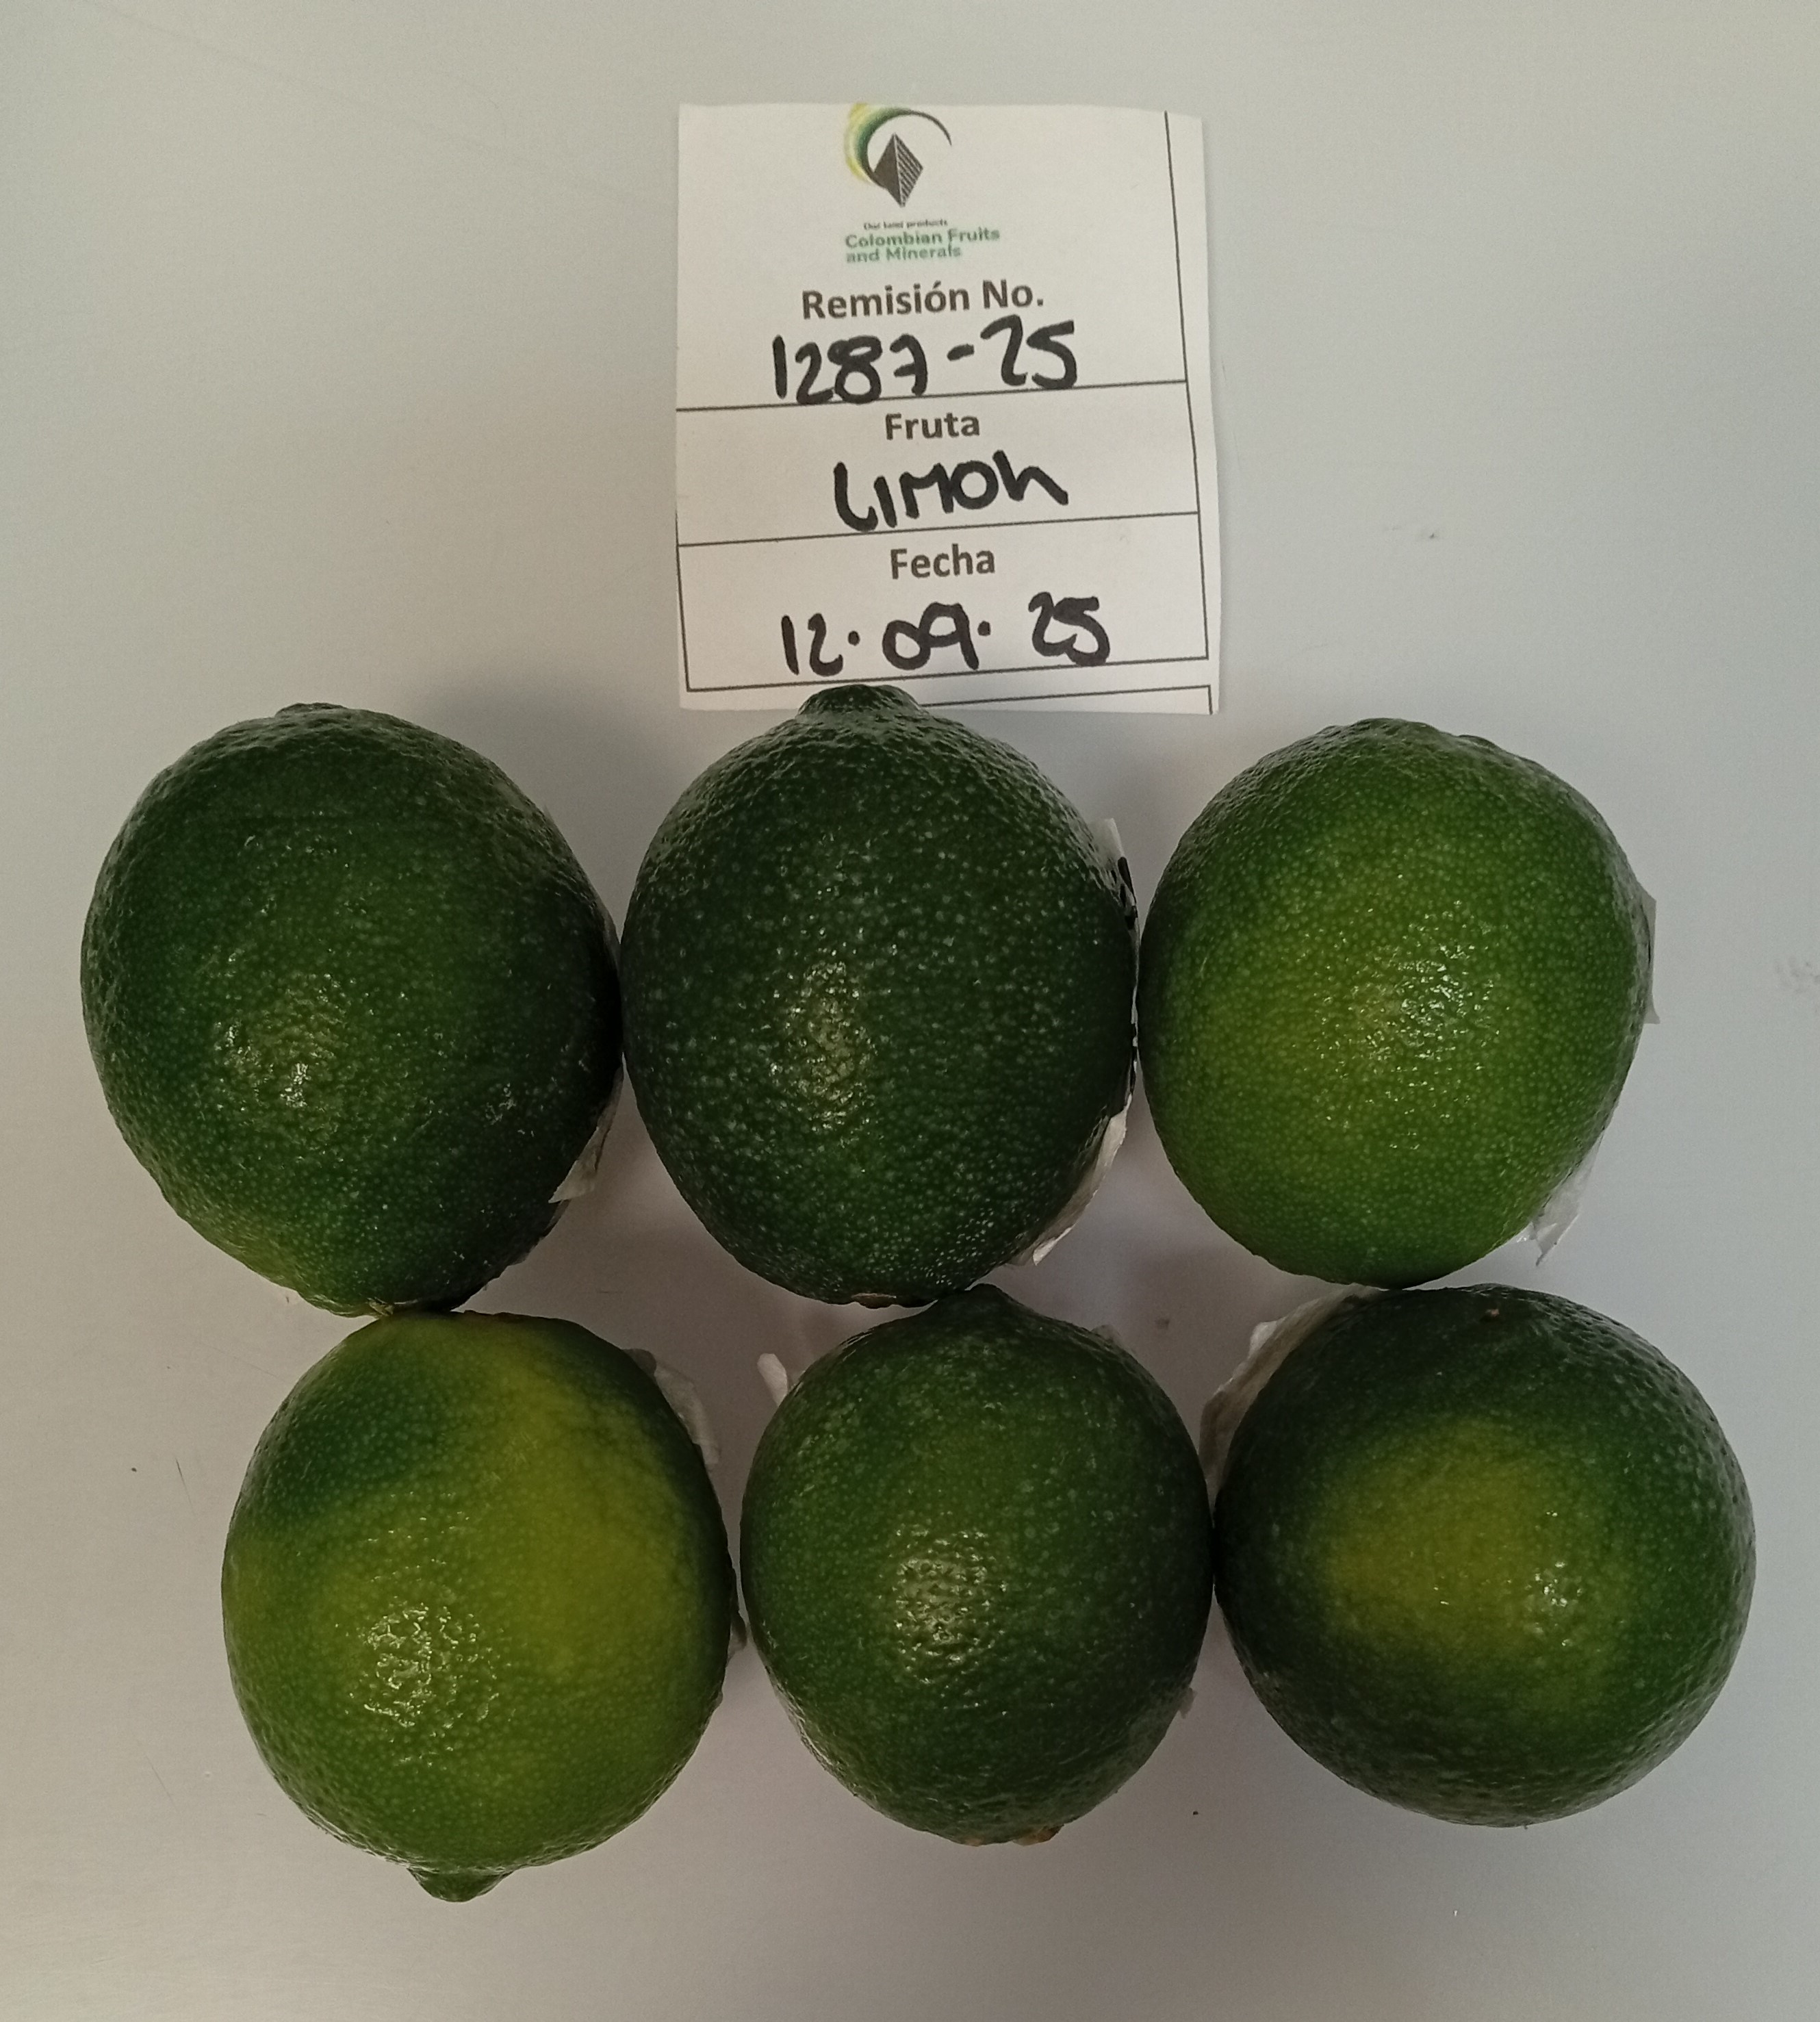 Our best products
Colombian Fruits
and Minerals
Remisión No.
1287-25
Fruta
LIMON
Fecha
12.09.25